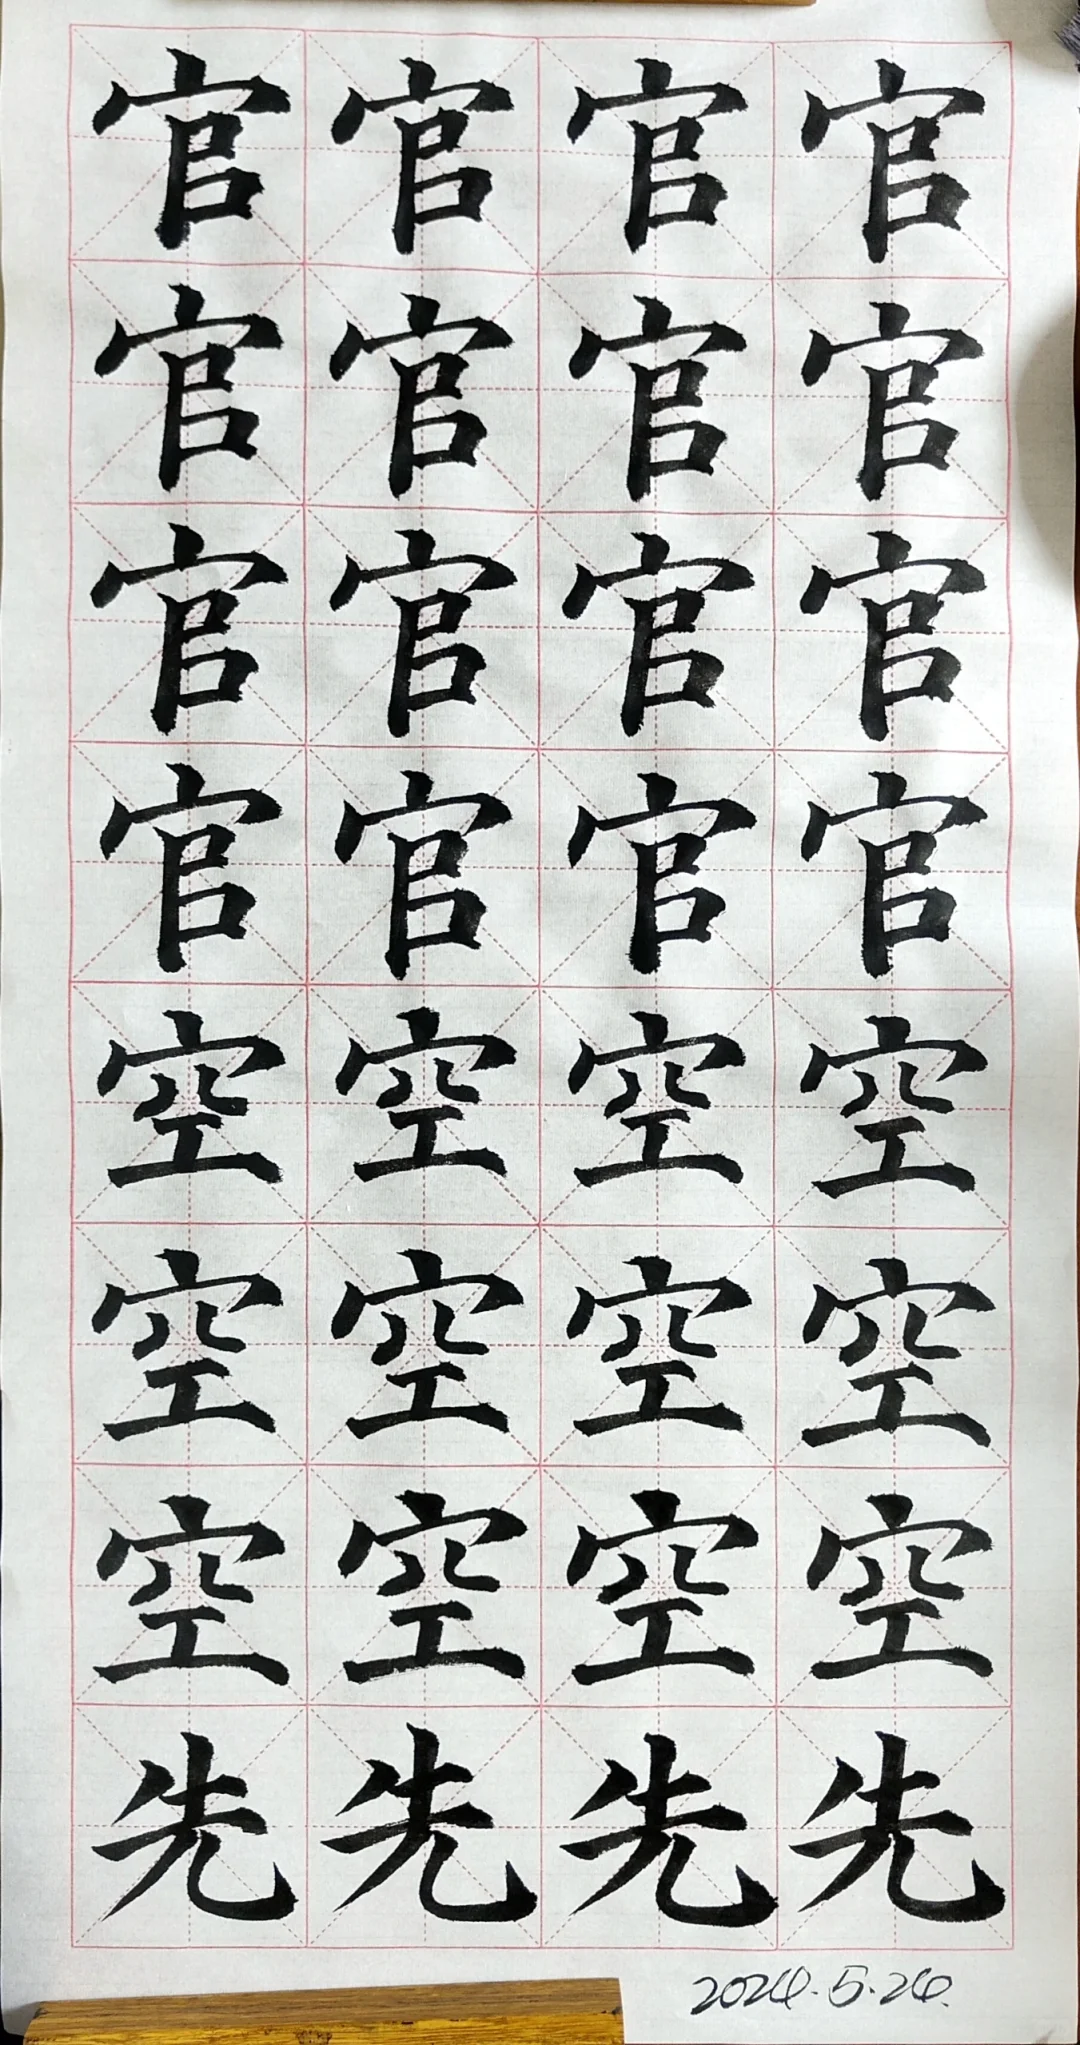 官官官官
官官官官
官官官官
官官官官
空空空空
空空空空
空空空空
先先先先
2024.5.24.